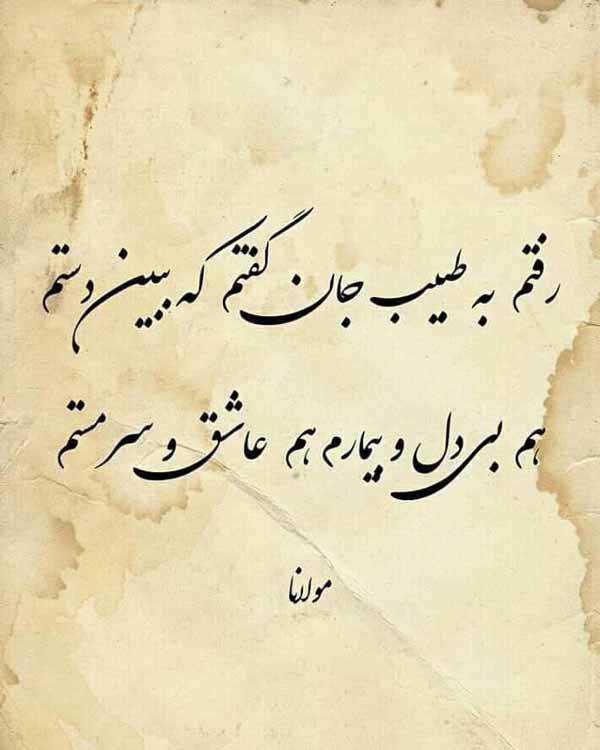 رفتم به طبیب جان گفتم که ببین دستم
هم بی دل و بیمارم هم عاشق و سرمستم
مولانا